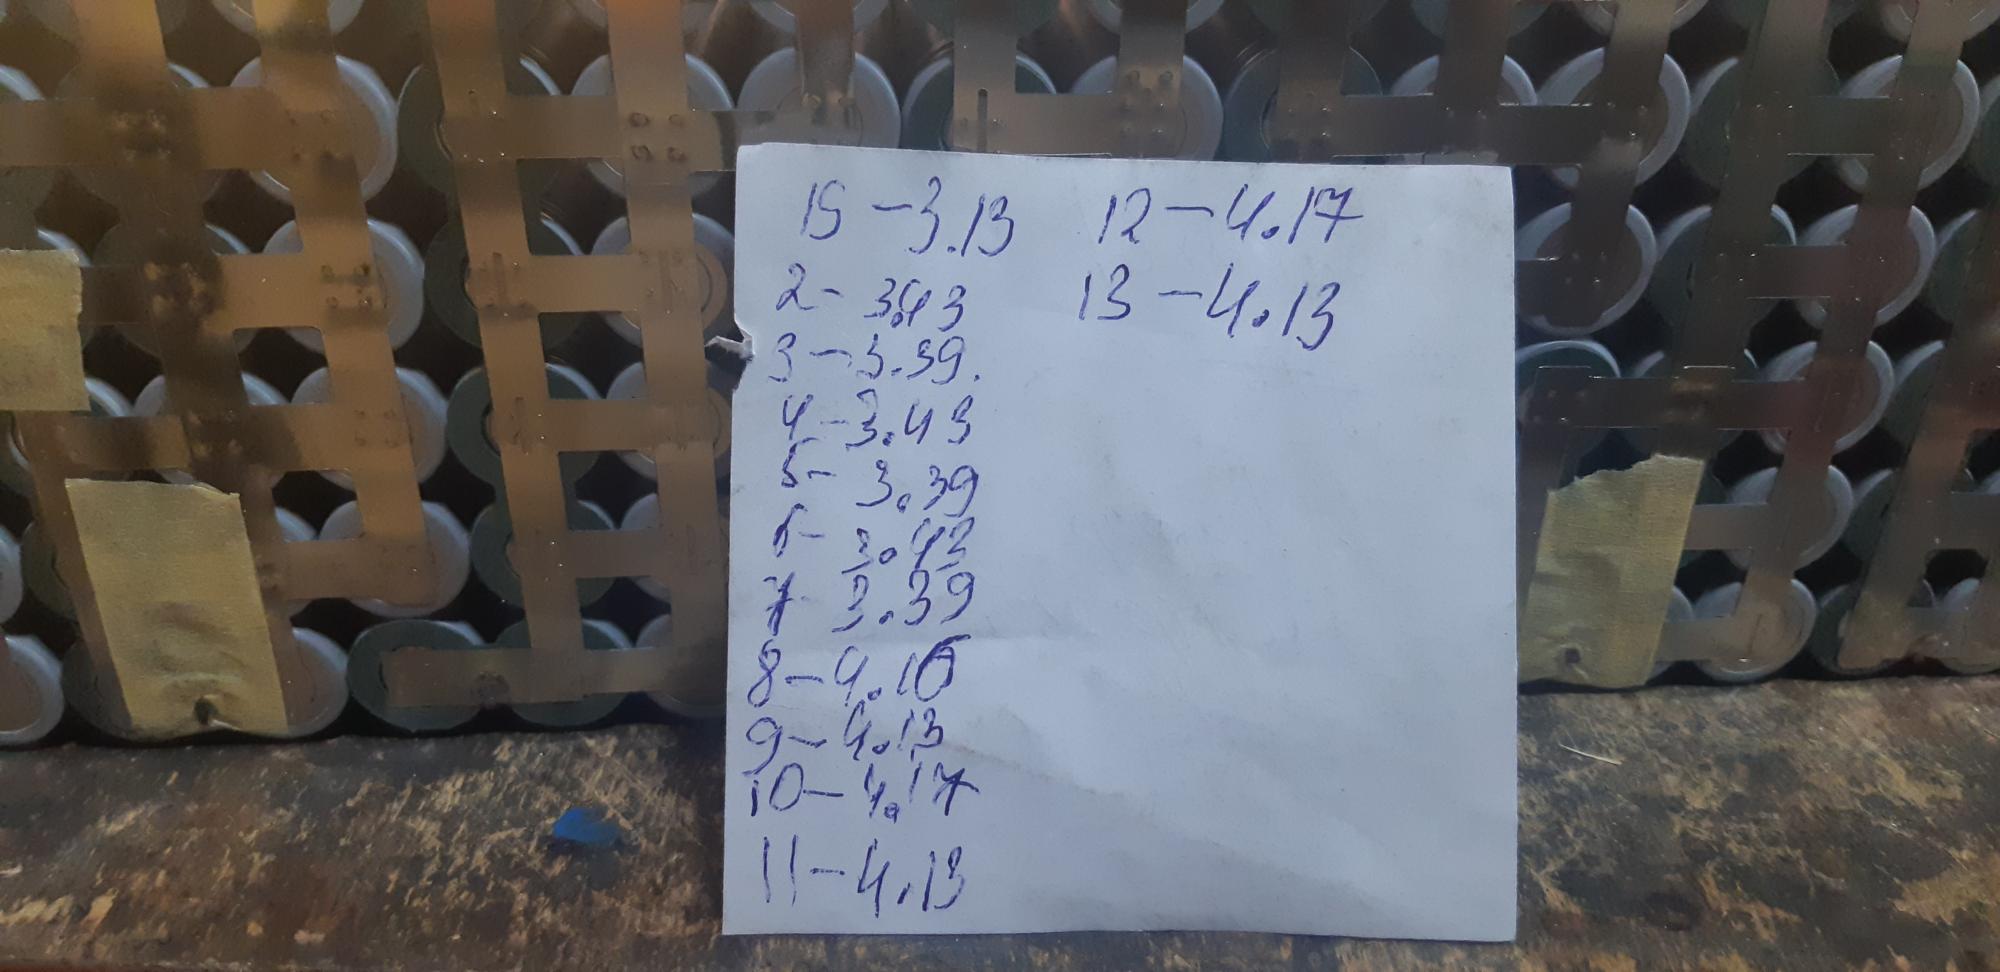 1S - 3.13
2 - 3.43
3 - 3.39.
4 - 3.43
5 - 3.39
6 - 3.43
7 - 3.39
8 - 4.16
9 - 4.13
10 - 4.17
11 - 4.13
12 - 4.17
13 - 4.13